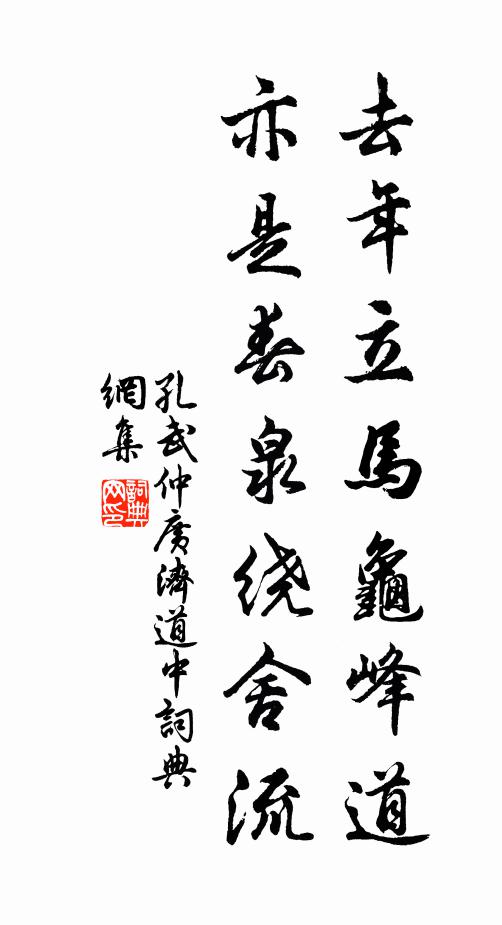 去年立馬龜峰道
亦是春泉绕舍流
孔武仲廣濟道中詞典
網集
詞典
网印